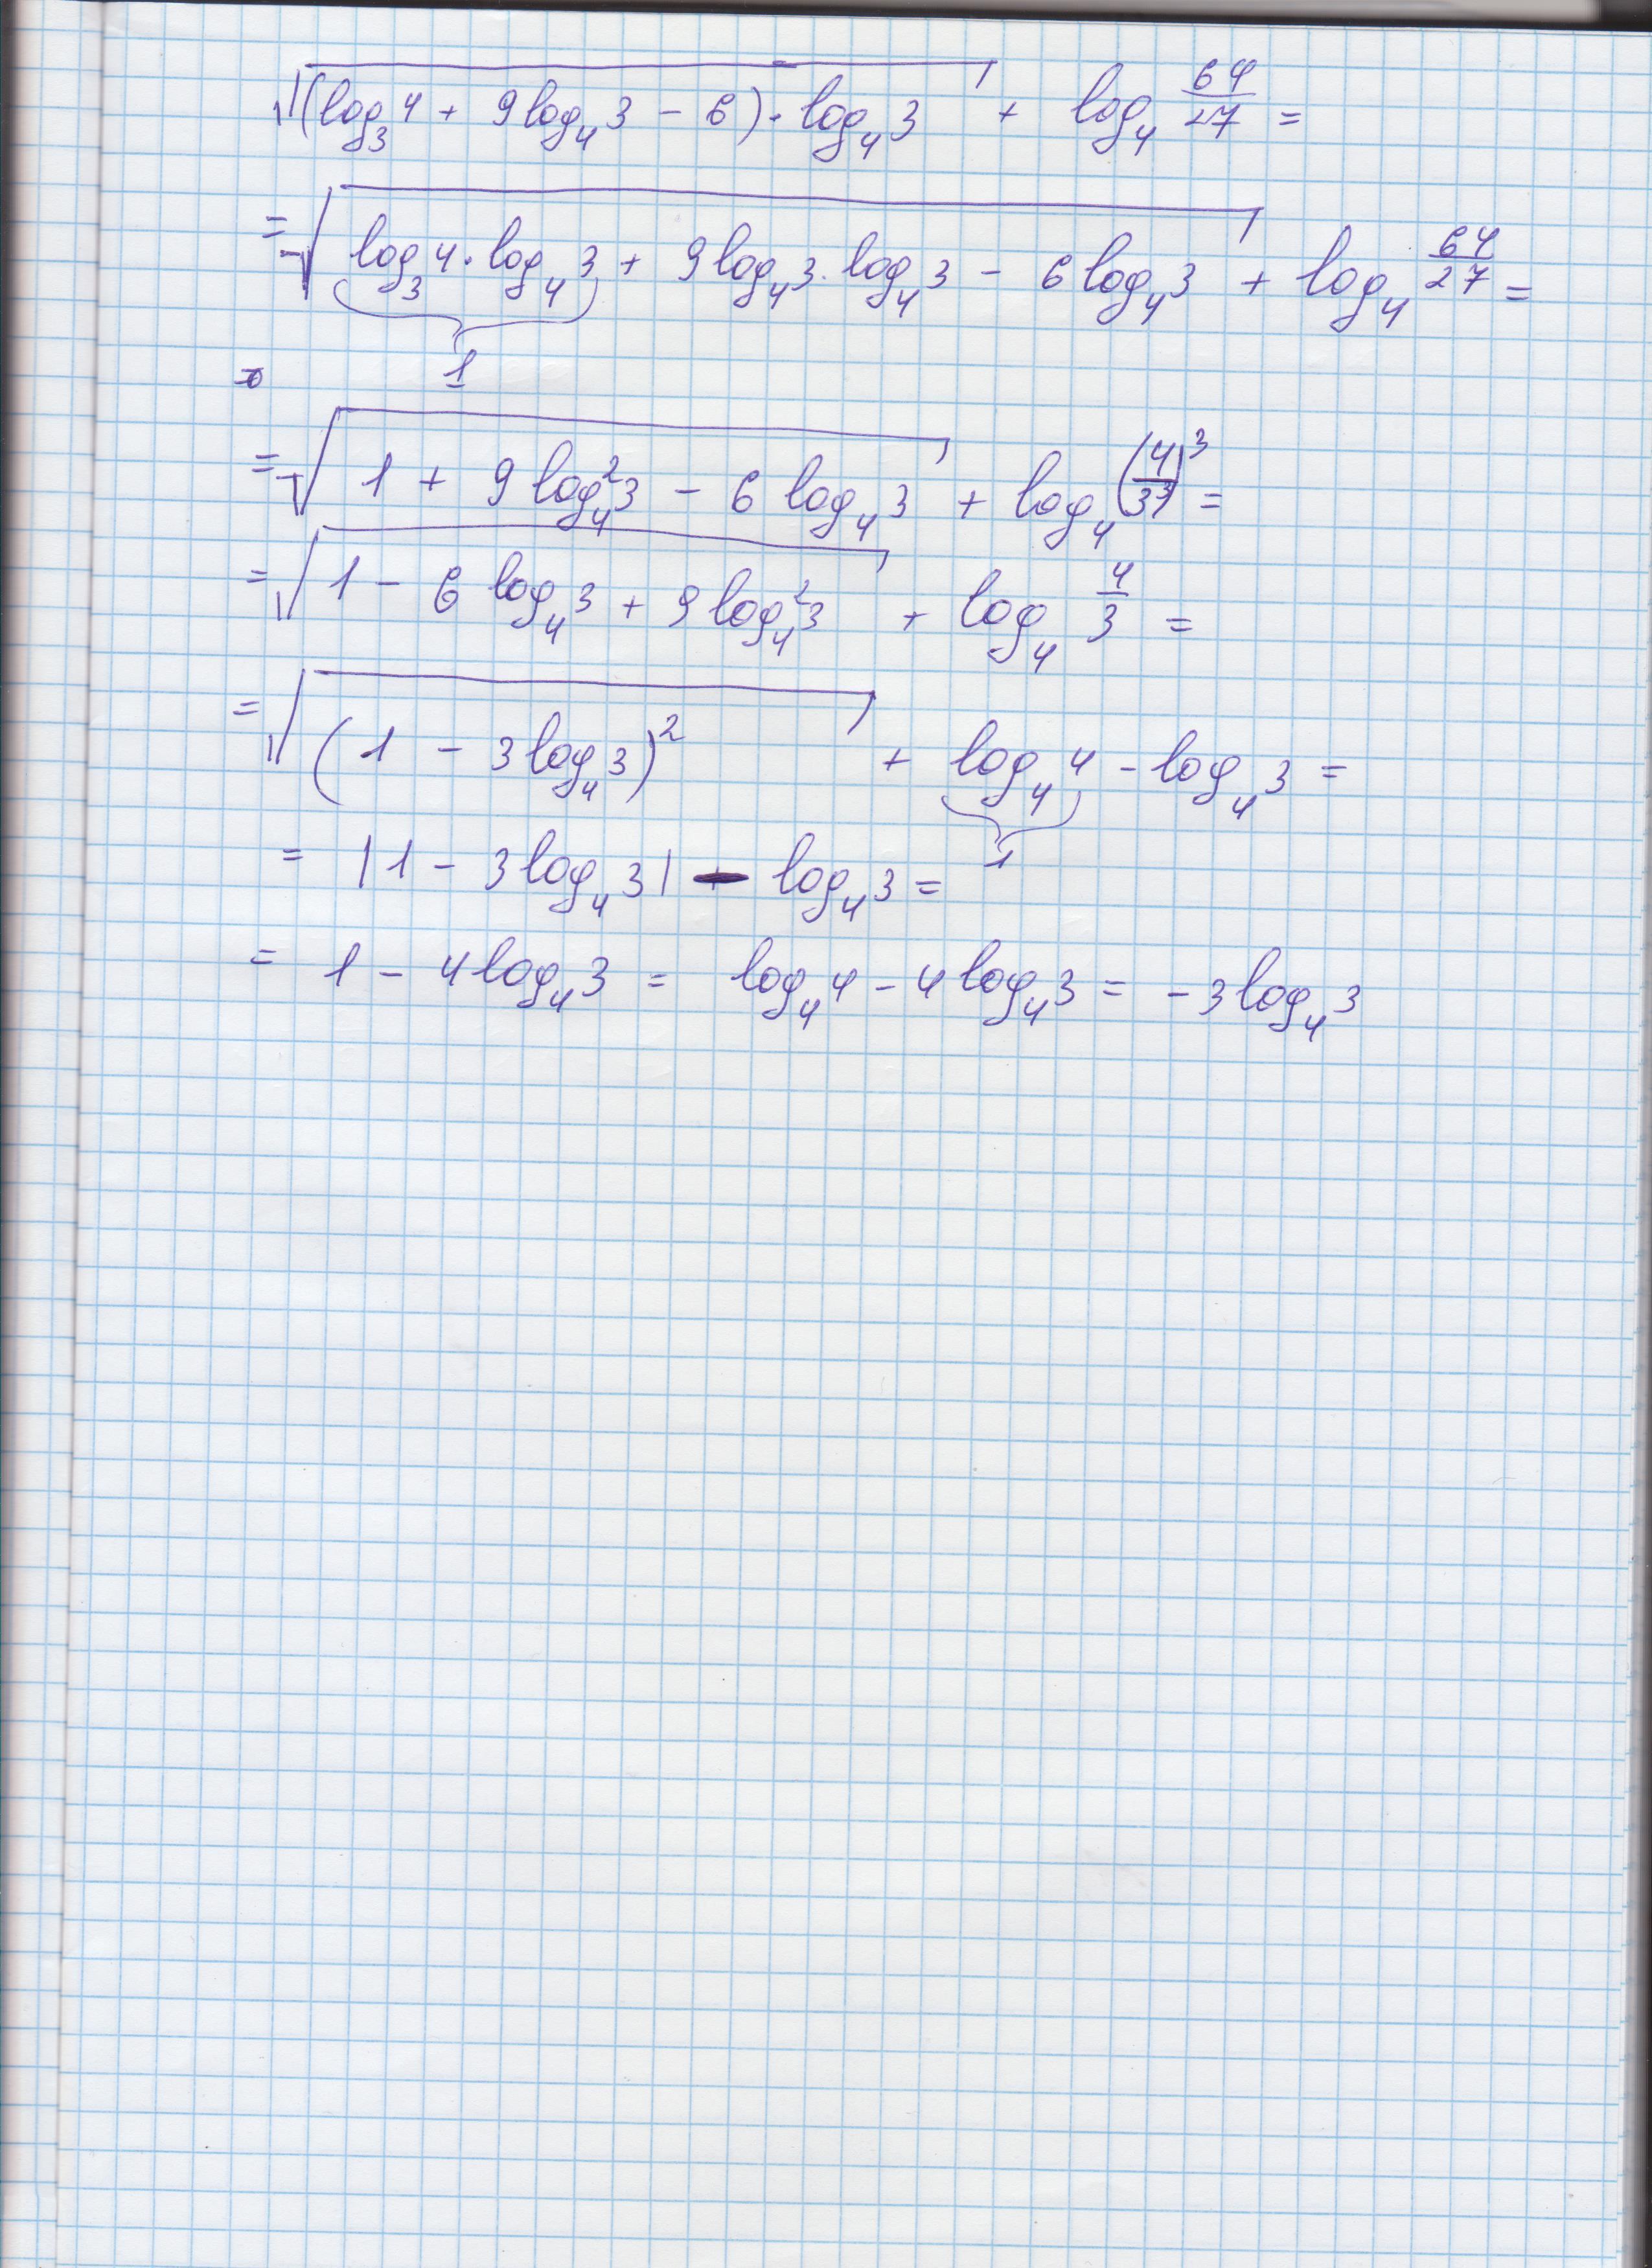 √((log₃4 + 9log₄3 - 6)·log₄3) + log₄ 64/27 =
= √(log₃4·log₄3 + 9log₄3·log₄3 - 6log₄3) + log₄ 64/27 =
1
= √(1 + 9log₄²3 - 6log₄3) + log₄(4/3)³ =
= √(1 - 6log₄3 + 9log₄²3) + log₄ 4/3 =
= √((1 - 3log₄3)²) + log₄4 - log₄3 =
1
= |1 - 3log₄3| - log₄3 =
= 1 - 4log₄3 = log₄4 - 4log₄3 = -3log₄3